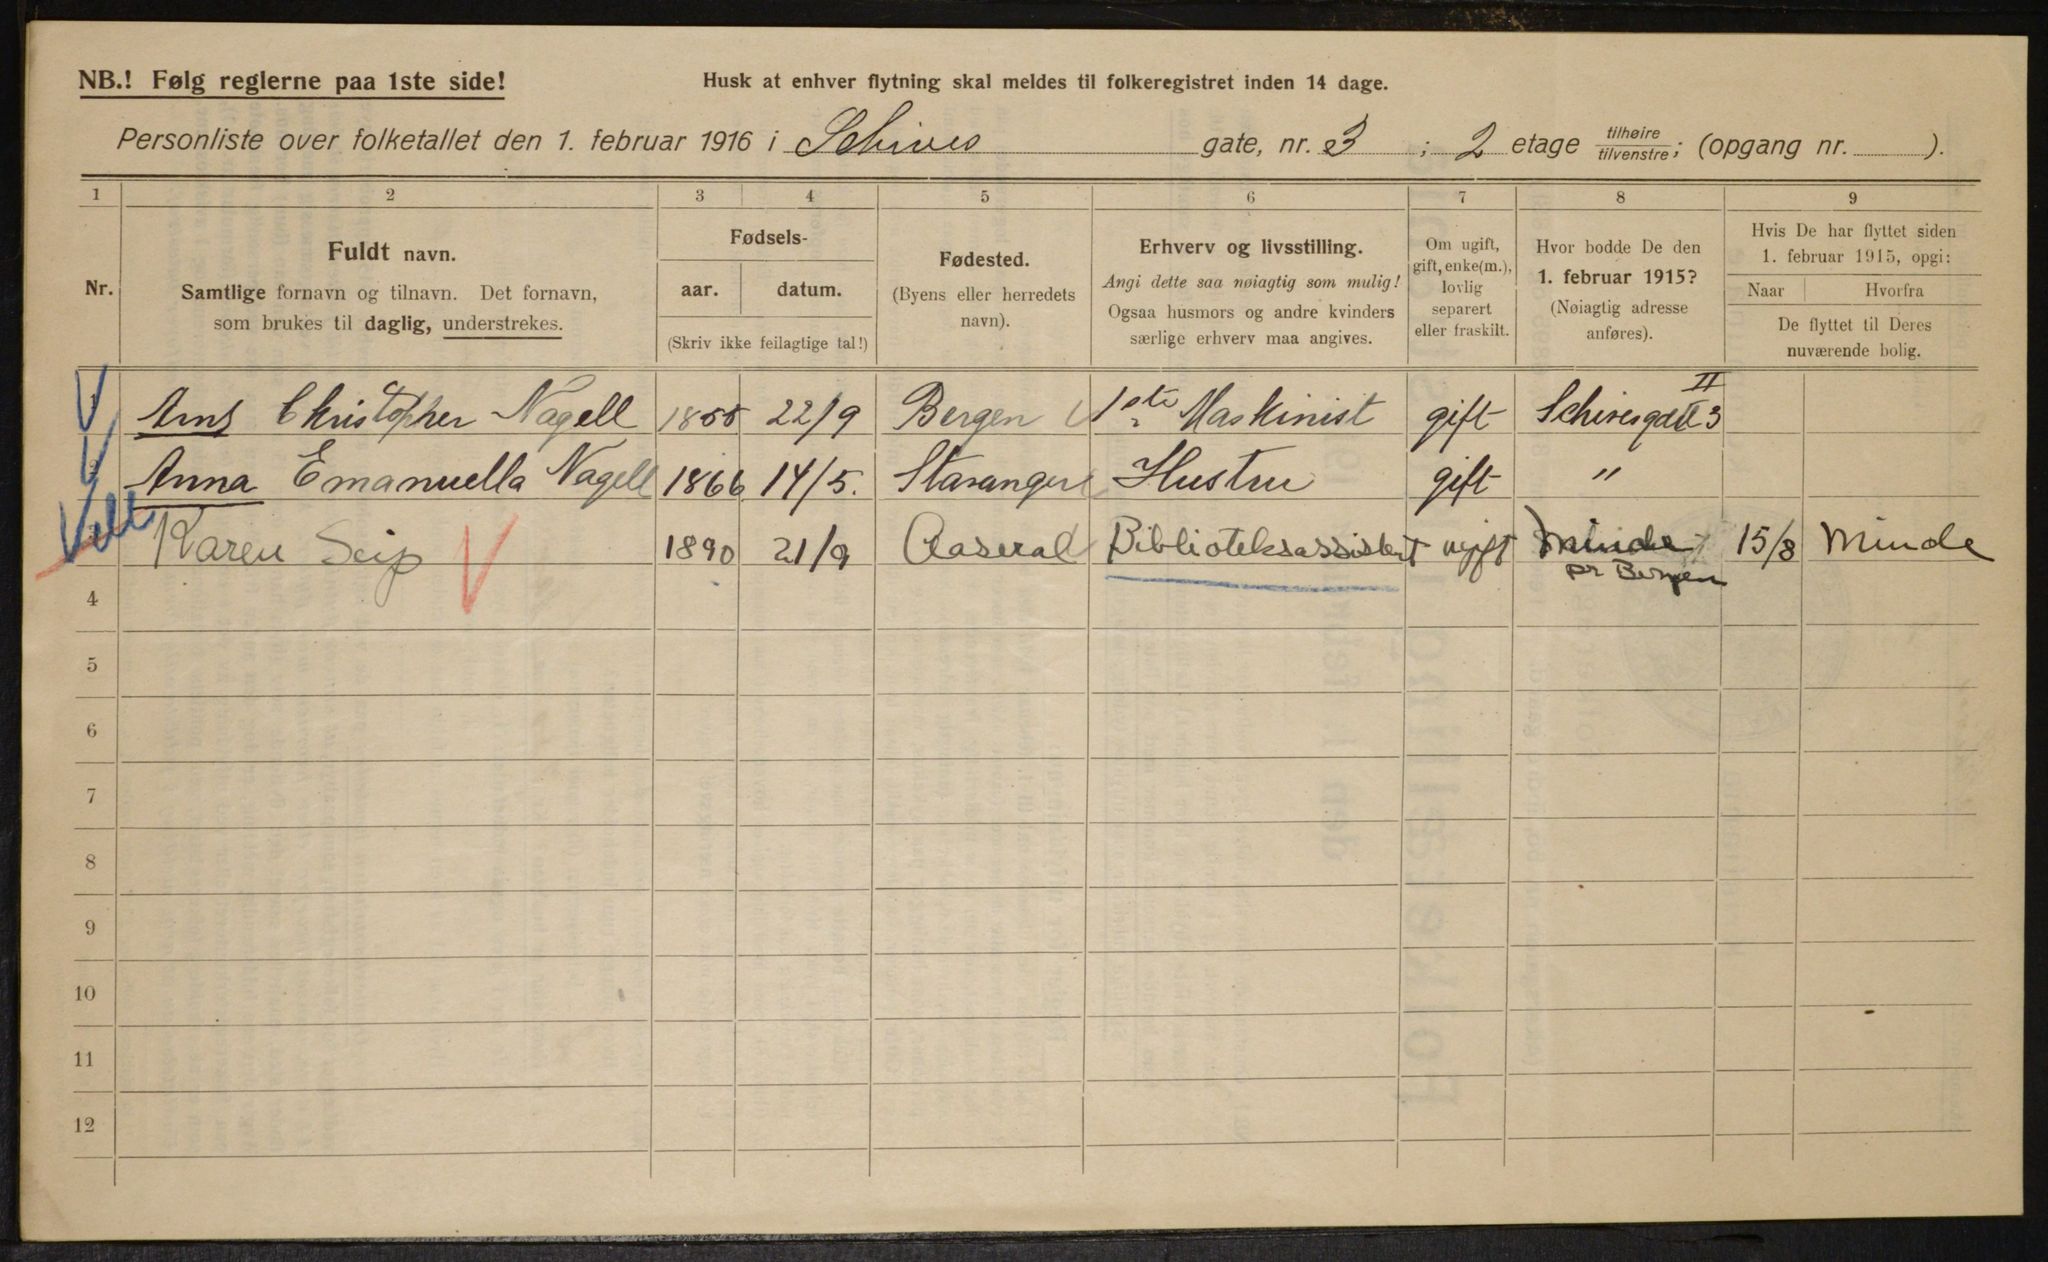 NB.! Følg reglerne paa 1ste side! Husk at enhver flytning skal meldes til folkeregistret inden 14 dage.
Personliste over folketallet den 1. februar 1916 i Schives gate, nr. 3 ; 2 etage tilhøire/tilvenstre; (opgang nr. ).
1 2 3 4 5 6 7 8 9
Nr.
Fuldt navn.
Samtlige fornavn og tilnavn. Det fornavn,
som brukes til daglig, understrekes.
Fødsels-
aar. datum.
(Skriv ikke feilagtige tal!)
Fødested.
(Byens eller herredets
navn).
Erhverv og livsstilling.
Angi dette saa nøiagtig som mulig!
Ogsaa husmors og andre kvinders
særlige erhverv maa angives.
Om ugift,
gift, enke(m.),
lovlig
separert
eller fraskilt.
Hvor bodde De den
1. februar 1915?
(Nøiagtig adresse
anføres).
Hvis De har flyttet siden
1. februar 1915, opgi:
Naar Hvorfra
De flyttet til Deres
nuværende bolig.
Christopher Nagell 1855 22/9 Bergen 1ste Maskinist gift Schivesgate 3 II
Anna Emanuella Nagell 1866 14/5. Stavanger Hustru gift "
Karen Seip 1890 21/9 Aaseral Biblioteksassistent ugift Minde 15/8 Minde
pr Bergen
4
5
6
7
8
9
10
11
12